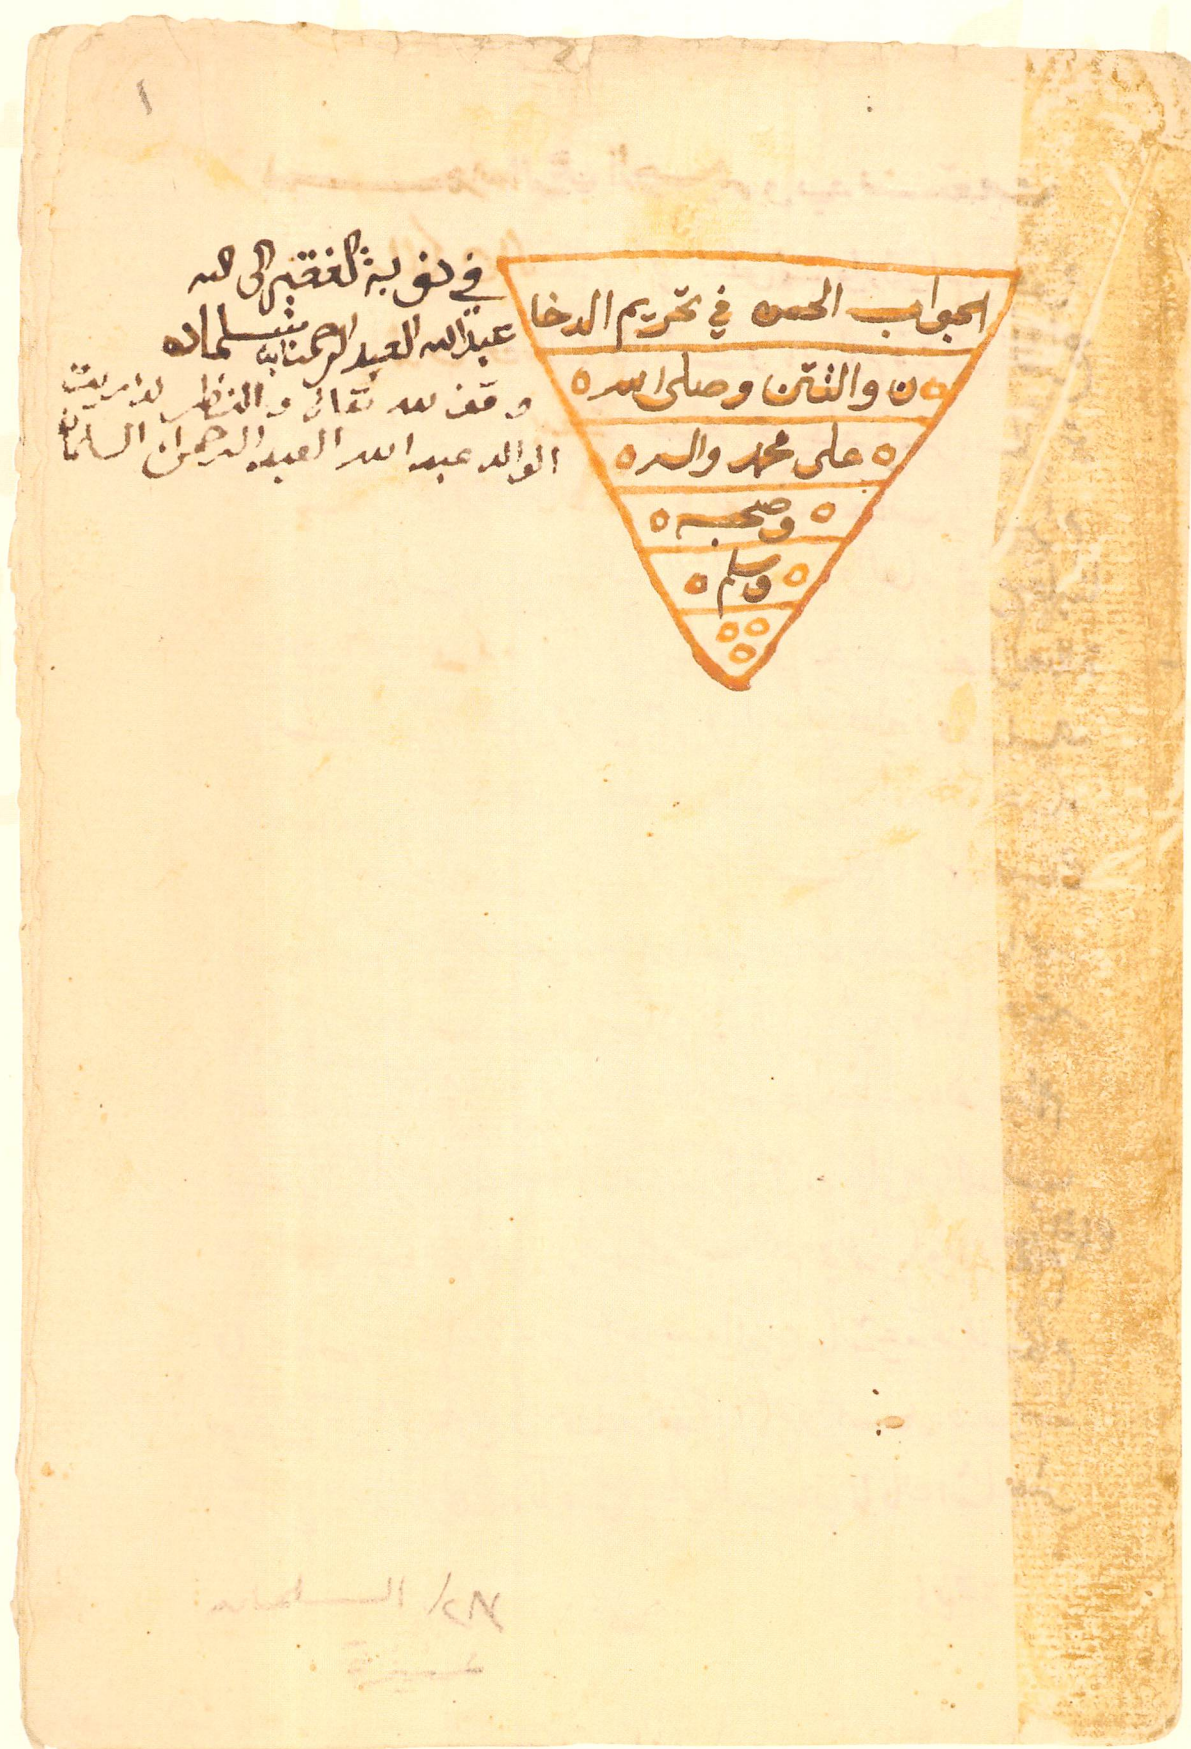 ١
الجواب الحسن في تحريم الدخا
ن والتتن وصلى الله
على محمد واله
وصحبه
وسلم
في نوبة الفقير الى الله
عبد الله العبد الرحمن السلمان
وقف لله تعالى والنظر
الوالد عبد الله العبد الرحمن السلمان